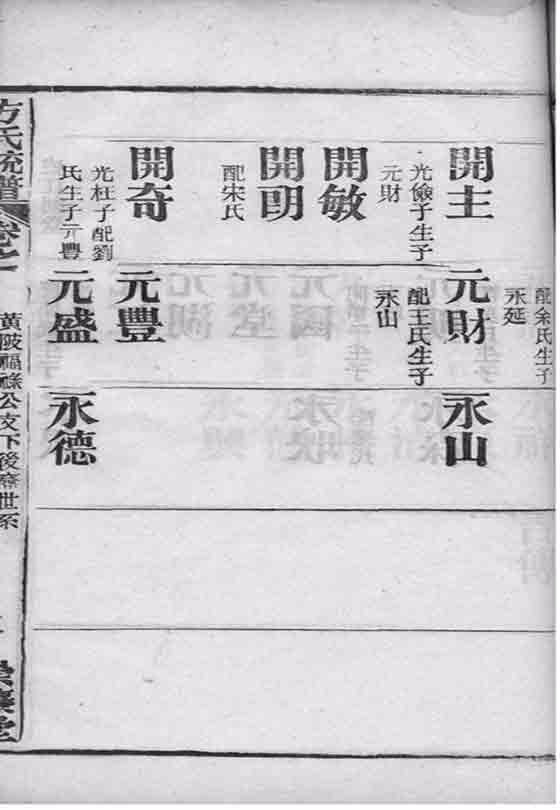 開主
光儉子生子
元財
開敏
開明
配宋氏
開奇
光柱子配劉
氏生子元豐
配余氏生子
永延
元財
配王氏生子
永山
元豐
元盛
永山
永德
方氏統譜
卷之
黃陂福
公支下後
世系
堂